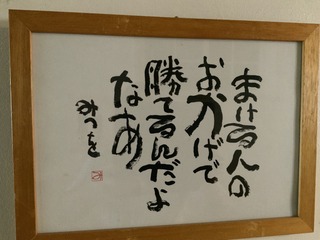 まける人の
おかげで
勝てるんだよ
なあ
みつを